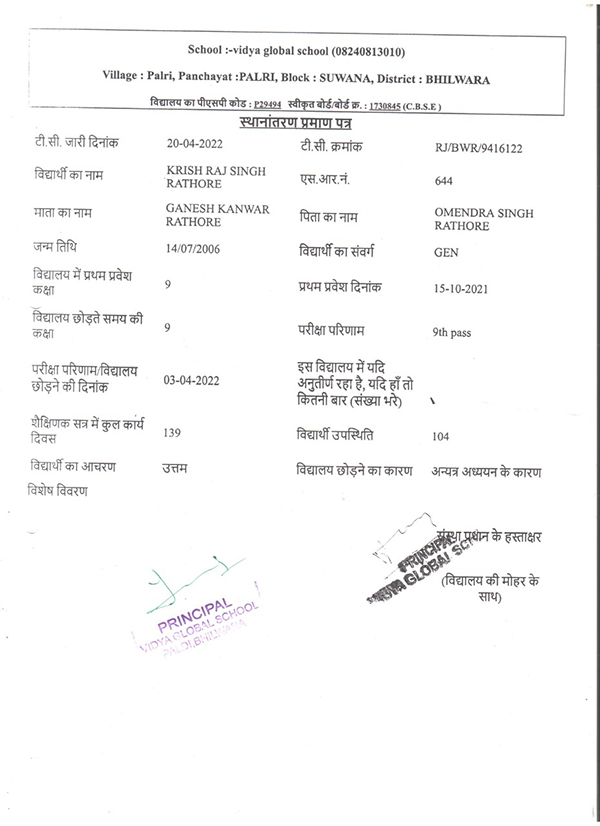 School :-vidya global school (08240813010)
Village : Palri, Panchayat :PALRI, Block : SUWANA, District : BHILWARA
विद्यालय का पीएसपी कोड : P29494 स्वीकृत बोर्ड/बोर्ड क्र. : 1730845 (C.B.S.E )
स्थानांतरण प्रमाण पत्र
टी.सी. जारी दिनांक 20-04-2022 टी.सी. क्रमांक RJ/BWR/9416122
विद्यार्थी का नाम KRISH RAJ SINGH RATHORE एस.आर.नं. 644
माता का नाम GANESH KANWAR RATHORE पिता का नाम OMENDRA SINGH RATHORE
जन्म तिथि 14/07/2006 विद्यार्थी का संवर्ग GEN
विद्यालय में प्रथम प्रवेश कक्षा 9 प्रथम प्रवेश दिनांक 15-10-2021
विद्यालय छोड़ते समय की कक्षा 9 परीक्षा परिणाम 9th pass
परीक्षा परिणाम/विद्यालय छोड़ने की दिनांक 03-04-2022 इस विद्यालय में यदि अनुतीर्ण रहा है, यदि हाँ तो कितनी बार (संख्या भरे) \
शैक्षिणक सत्र में कुल कार्य दिवस 139 विद्यार्थी उपस्थिति 104
विद्यार्थी का आचरण उत्तम विद्यालय छोड़ने का कारण अन्यत्र अध्ययन के कारण
विशेष विवरण
संस्था प्रधान के हस्ताक्षर
(विद्यालय की मोहर के
साथ)
PRINCIPAL
VIDYA GLOBAL SCHOOL
PALDI,BHILWARA
PRINCIPAL
VIDYA GLOBAL SCHOOL